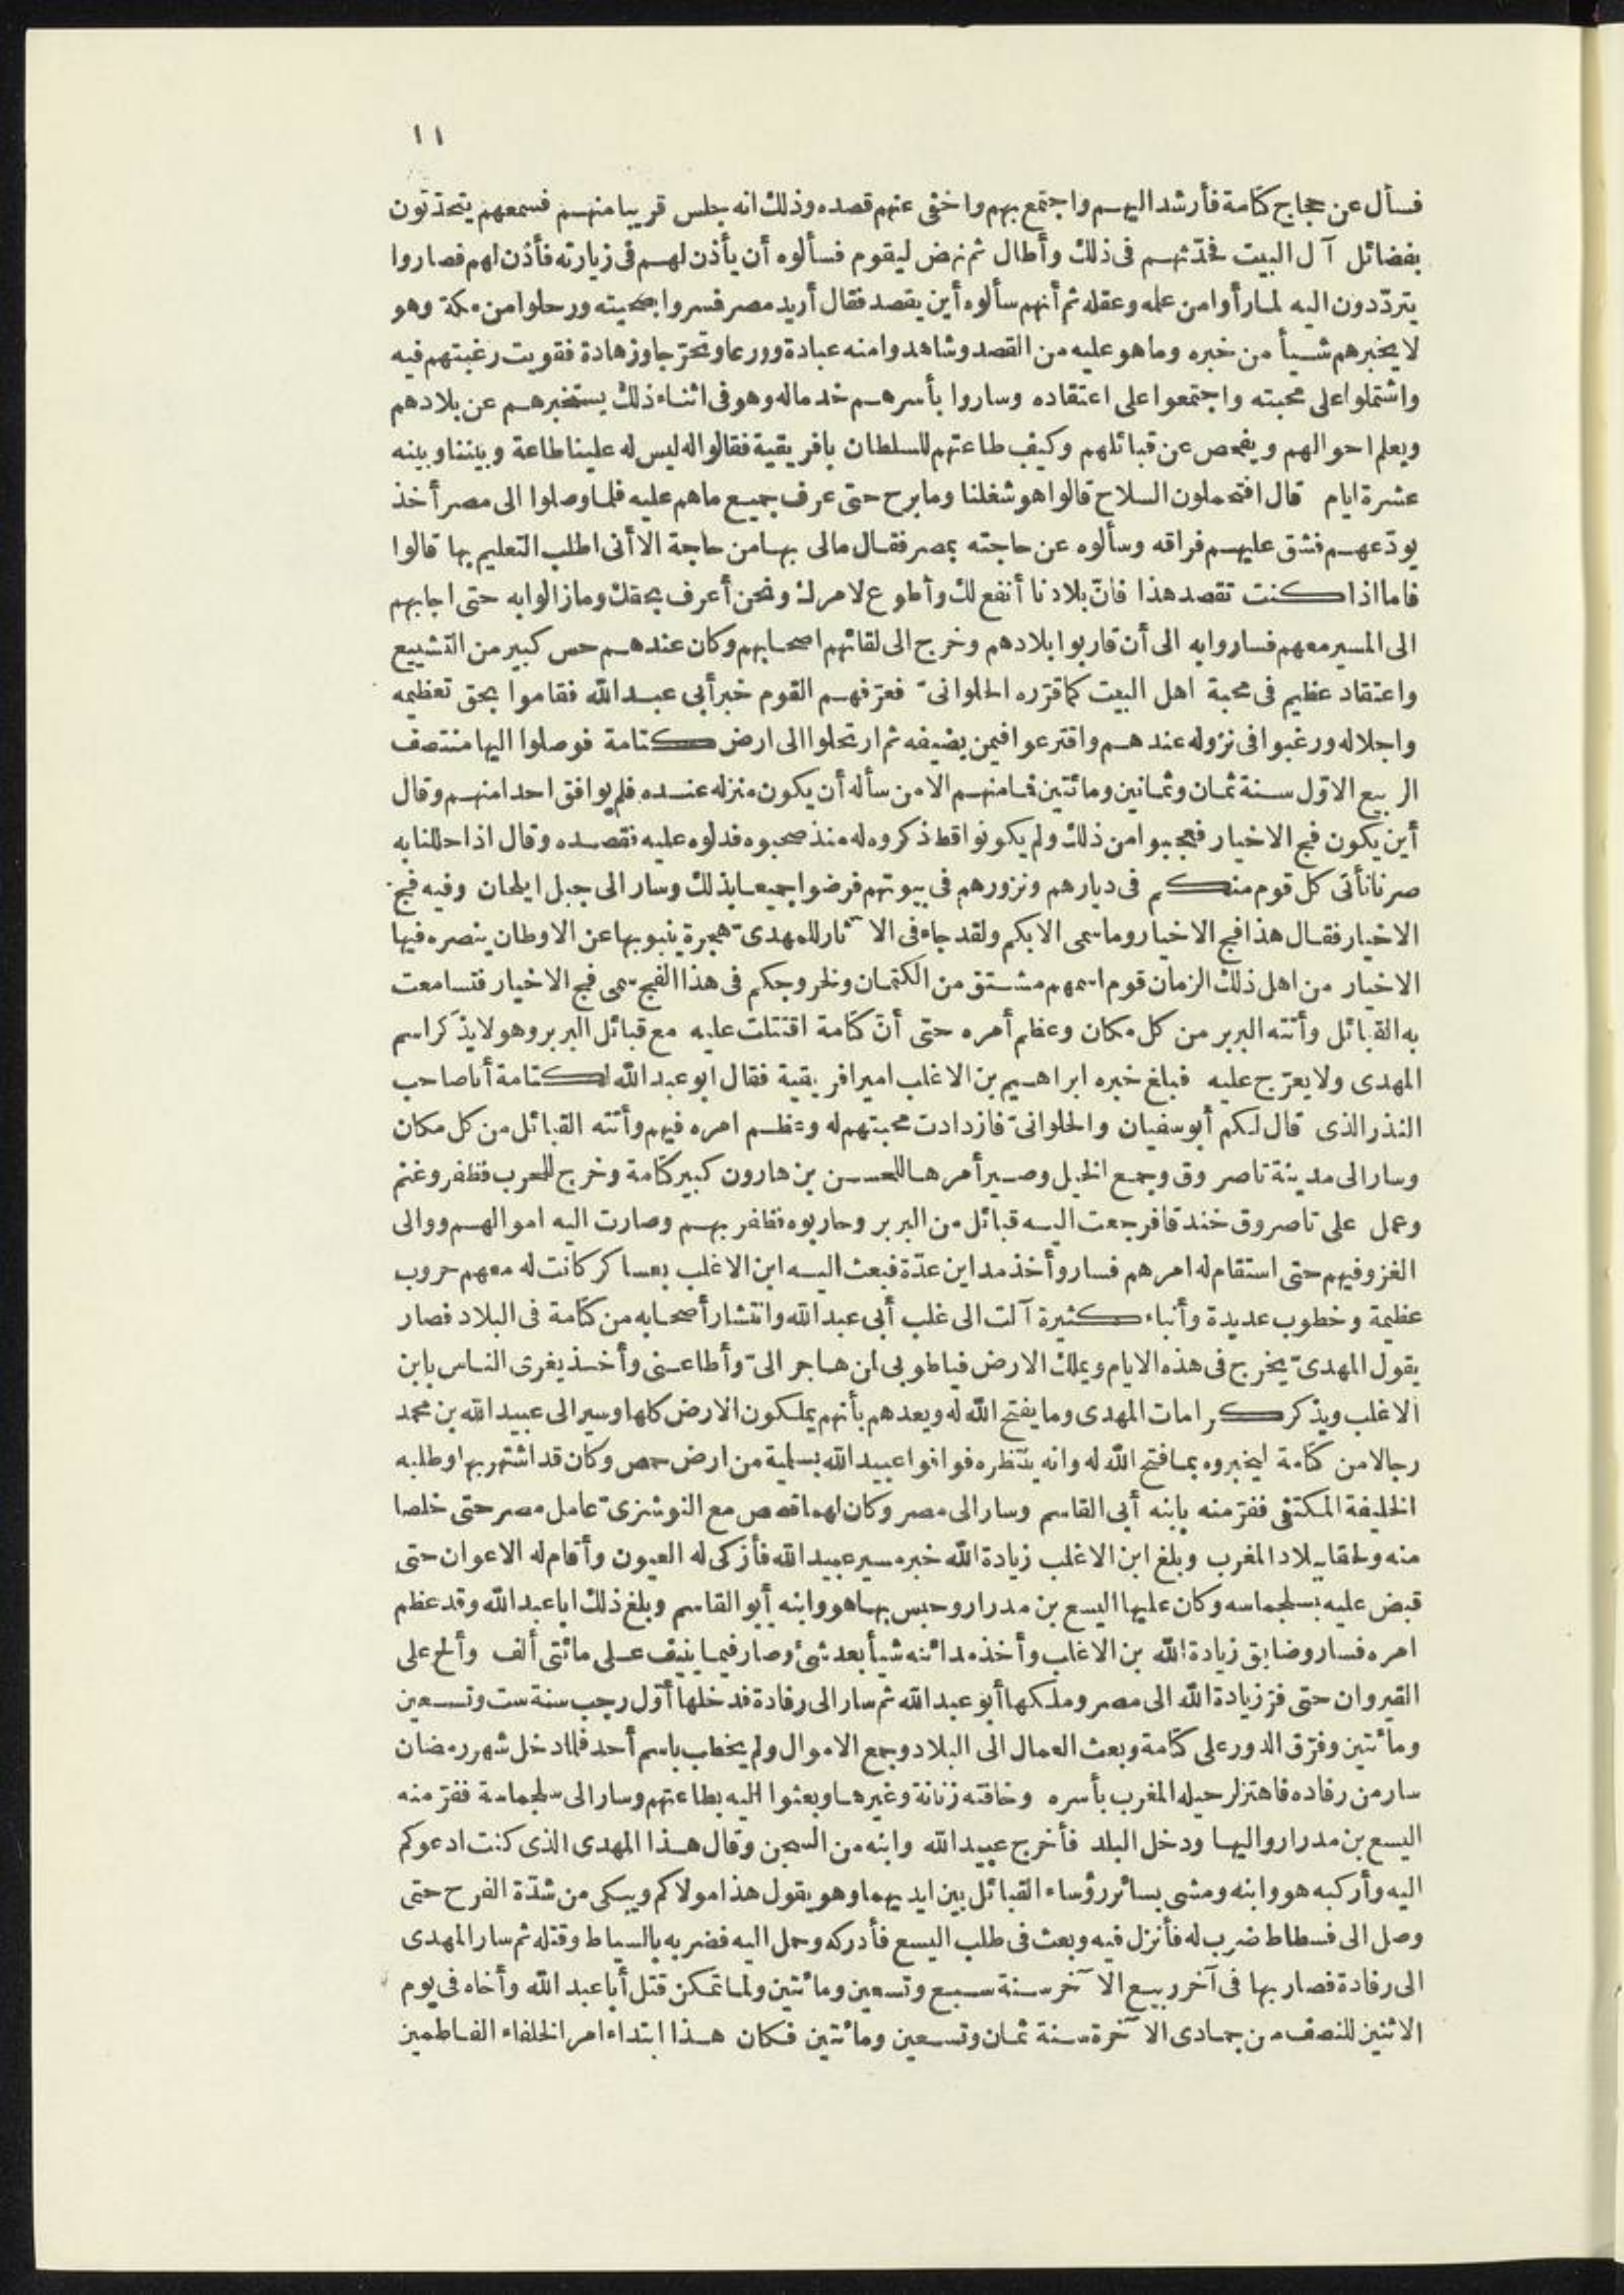 ١١
فسأل عن حجاج كتامة فأرشد اليهم واجتمع بهم واخفى عنهم قصده وذلك انه جلس قريبا منهم فسمعهم يتحدثون
بفضائل آل البيت فحدّثهم فى ذلك وأطال ثم نهض ليقوم فسألوه أن يأذن لهم فى زيارته فأذن لهم فصاروا
يتردّدون اليه لما رأوا من علمه وعقله ثم أنهم سألوه أين يقصد فقال أريد مصر فسروا بصحبته ورحلوا من مكة وهو
لا يخبرهم شيأ من خبره وما هو عليه من القصد وشاهدوا منه عبادة وورعا وتحرّجا وزهادة فقويت رغبتهم فيه
واشتملوا على محبته واجتمعوا على اعتقاده وساروا بأسرهم خدما له وهو فى اثناء ذلك يستخبرهم عن بلادهم
ويعلم احوالهم ويفحص عن قبائلهم وكيف طاعتهم للسلطان بافريقية فقالوا له ليس له علينا طاعة وبيننا وبينه
عشرة ايام قال افتحملون السلاح قالوا هو شغلنا وما برح حتى عرف جميع ما هم عليه فلما وصلوا الى مصر أخذ
يودّعهم فشق عليهم فراقه وسألوه عن حاجته بمصر فقال مالى بها من حاجة الا أنى اطلب التعليم بها قالوا
فاما اذا كنت تقصد هذا فانّ بلادنا أنفع لك وأطوع لامرك ونحن أعرف بحقك وما زالوا به حتى اجابهم
الى المسير معهم فساروا به الى أن قاربوا بلادهم وخرج الى لقائهم اصحابهم وكان عندهم حس كبير من التشييع
واعتقاد عظيم فى محبة اهل البيت كما قرّره الحلوانىّ فعرّفهم القوم خبر أبى عبد الله فقاموا بحق تعظيمه
واجلاله ورغبوا فى نزوله عندهم واقترعوا فيمن يضيفه ثم ارتحلوا الى ارض كتامة فوصلوا اليها منتصف
الربيع الاوّل سنة ثمان وثمانين ومائتين فما منهم الا من سأله أن يكون منزله عنده فلم يوافق احدا منهم وقال
أين يكون فج الاخيار فعجبوا من ذلك ولم يكونوا قط ذكروه له منذ صحبوه فدلوه عليه فقصده وقال اذا حللنا به
صرنا نأتى كل قوم منكم فى ديارهم ونزورهم فى بيوتهم فرضوا جميعا بذلك وسار الى جبل ايلحان وفيه فج
الاخيار فقال هذا فج الاخيار وما سمى الا بكم ولقد جاء فى الآثار للمهدىّ هجرة ينبو بها عن الاوطان ينصره فيها
الاخيار من اهل ذلك الزمان قوم اسمهم مشتق من الكتمان ولخروجكم فى هذا الفج سمى فج الاخيار فتسامعت
به القبائل وأتته البربر من كل مكان وعظم أمره حتى أنّ كتامة اقتتلت عليه مع قبائل البربر وهو لا يذكر اسم
المهدى ولا يعرّج عليه فبلغ خبره ابراهيم بن الاغلب امير افريقية فقال ابو عبد الله لكتامة أنا صاحب
النذر الذى قال لكم أبو سفيان والحلوانىّ فازدادت محبتهم له وعظم امره فيهم وأتته القبائل من كل مكان
وسار الى مدينة تاصروق وجمع الخيل وصير أمرها للحسن بن هارون كبير كتامة وخرج للحرب فظفر وغنم
وعمل على تاصروق خندقا فرجعت اليه قبائل من البربر وحاربوه فظفر بهم وصارت اليه اموالهم ووالى
الغزو فيهم حتى استقام له امرهم فسار وأخذ مداين عدّة فبعث اليه ابن الاغلب بعساكر كانت له معهم حروب
عظيمة وخطوب عديدة وأنباء كثيرة آلت الى غلب أبى عبد الله وانتشار أصحابه من كتامة فى البلاد فصار
يقول المهدىّ يخرج فى هذه الايام ويملك الارض فيا طوبى لمن هاجر الىّ وأطاعنى وأخذ يغرى الناس بابن
الاغلب ويذكر كرامات المهدى وما يفتح الله له ويعدهم بأنهم يملكون الارض كلها وسير الى عبيد الله بن محمد
رجالا من كتامة ليخبروه بما فتح الله له وانه ينتظره فوافوا عبيد الله بسلمية من ارض حمص وكان قد اشتهر بها وطلبه
الخليفة المكتفى ففرّ منه بابنه أبى القاسم وسار الى مصر وكان لهما قصص مع النوشزىّ عامل مصر حتى خلصا
منه ولحقا ببلاد المغرب وبلغ ابن الاغلب زيادة الله خبر مسير عبيد الله فأزكى له العيون وأقام له الاعوان حتى
قبض عليه بسلجماسه وكان عليها اليسع بن مدرار وحبس بها هو وابنه أبو القاسم وبلغ ذلك ابا عبد الله وقد عظم
امره فسار وضايق زيادة الله بن الاغلب وأخذ مدائنه شيأ بعد شىء وصار فيما ينيف على مائتى ألف وألح على
القيروان حتى فرّ زيادة الله الى مصر وملكها أبو عبد الله ثم سار الى رفادة فدخلها أوّل رجب سنة ست وتسعين
ومائتين وفرّق الدور على كتامة وبعث العمال الى البلاد وجمع الاموال ولم يخطب باسم أحد فلما دخل شهر رمضان
سار من رفاده فاهتز لرحيله المغرب بأسره وخافته زنانة وغيرها وبعثوا اليه بطاعتهم وسار الى سلجماسة ففرّ منه
اليسع بن مدرار واليها ودخل البلد فأخرج عبيد الله وابنه من السجن وقال هذا المهدى الذى كنت ادعوكم
اليه وأركبه هو وابنه ومشى بسائر رؤساء القبائل بين ايديهما وهو يقول هذا مولاكم ويبكى من شدّة الفرح حتى
وصل الى فسطاط ضرب له فأنزل فيه وبعث فى طلب اليسع فأدركه وحمل اليه فضربه بالسياط وقتله ثم سار المهدى
الى رفادة فصار بها فى آخر ربيع الآخر سنة سبع وتسعين ومائتين ولما تمكن قتل أبا عبد الله وأخاه فى يوم
الاثنين للنصف من جمادى الآخرة سنة ثمان وتسعين ومائتين فكان هذا ابتداء امر الخلفاء الفاطمين